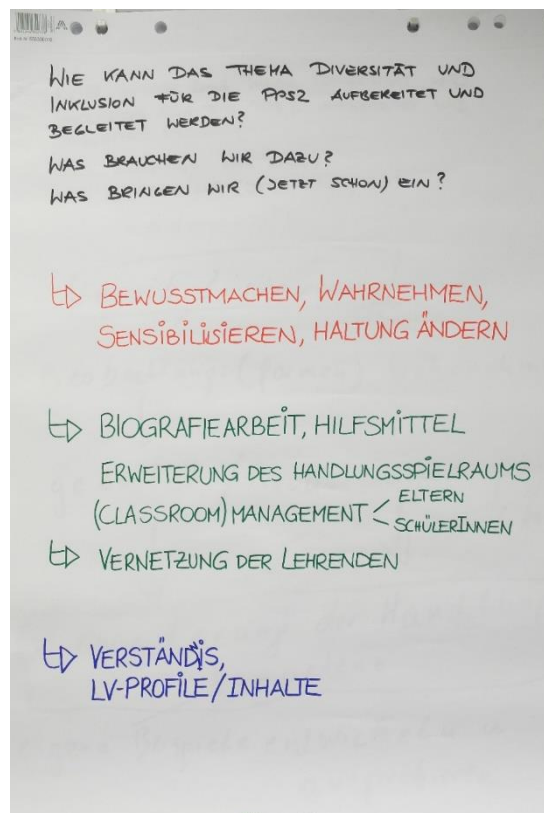 WIE KANN DAS THEMA DIVERSITÄT UND
INKLUSION FÜR DIE PPS2 AUFBEREITET UND
BEGLEITET WERDEN?
WAS BRAUCHEN WIR DAZU?
WAS BRINGEN WIR (JETZT SCHON) EIN?
↳ BEWUSSTMACHEN, WAHRNEHMEN,
SENSIBILISIEREN, HALTUNG ÄNDERN
↳ BIOGRAFIEARBEIT, HILFSMITTEL
ERWEITERUNG DES HANDLUNGSSPIELRAUMS
(CLASSROOM) MANAGEMENT < ELTERN
SCHÜLERINNEN
↳ VERNETZUNG DER LEHRENDEN
↳ VERSTÄNDIS,
LV-PROFILE/INHALTE